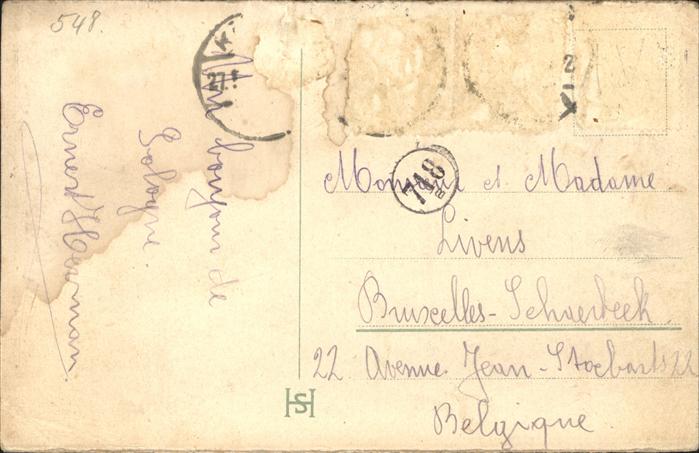 548.
bonjour de
Cologne
Ernest Herman
27
XI 2
748
Monsieur et Madame
Livens
Bruxelles-Schaerbeek
22 Avenue Jean-Stobarts 22
Belgique
HS